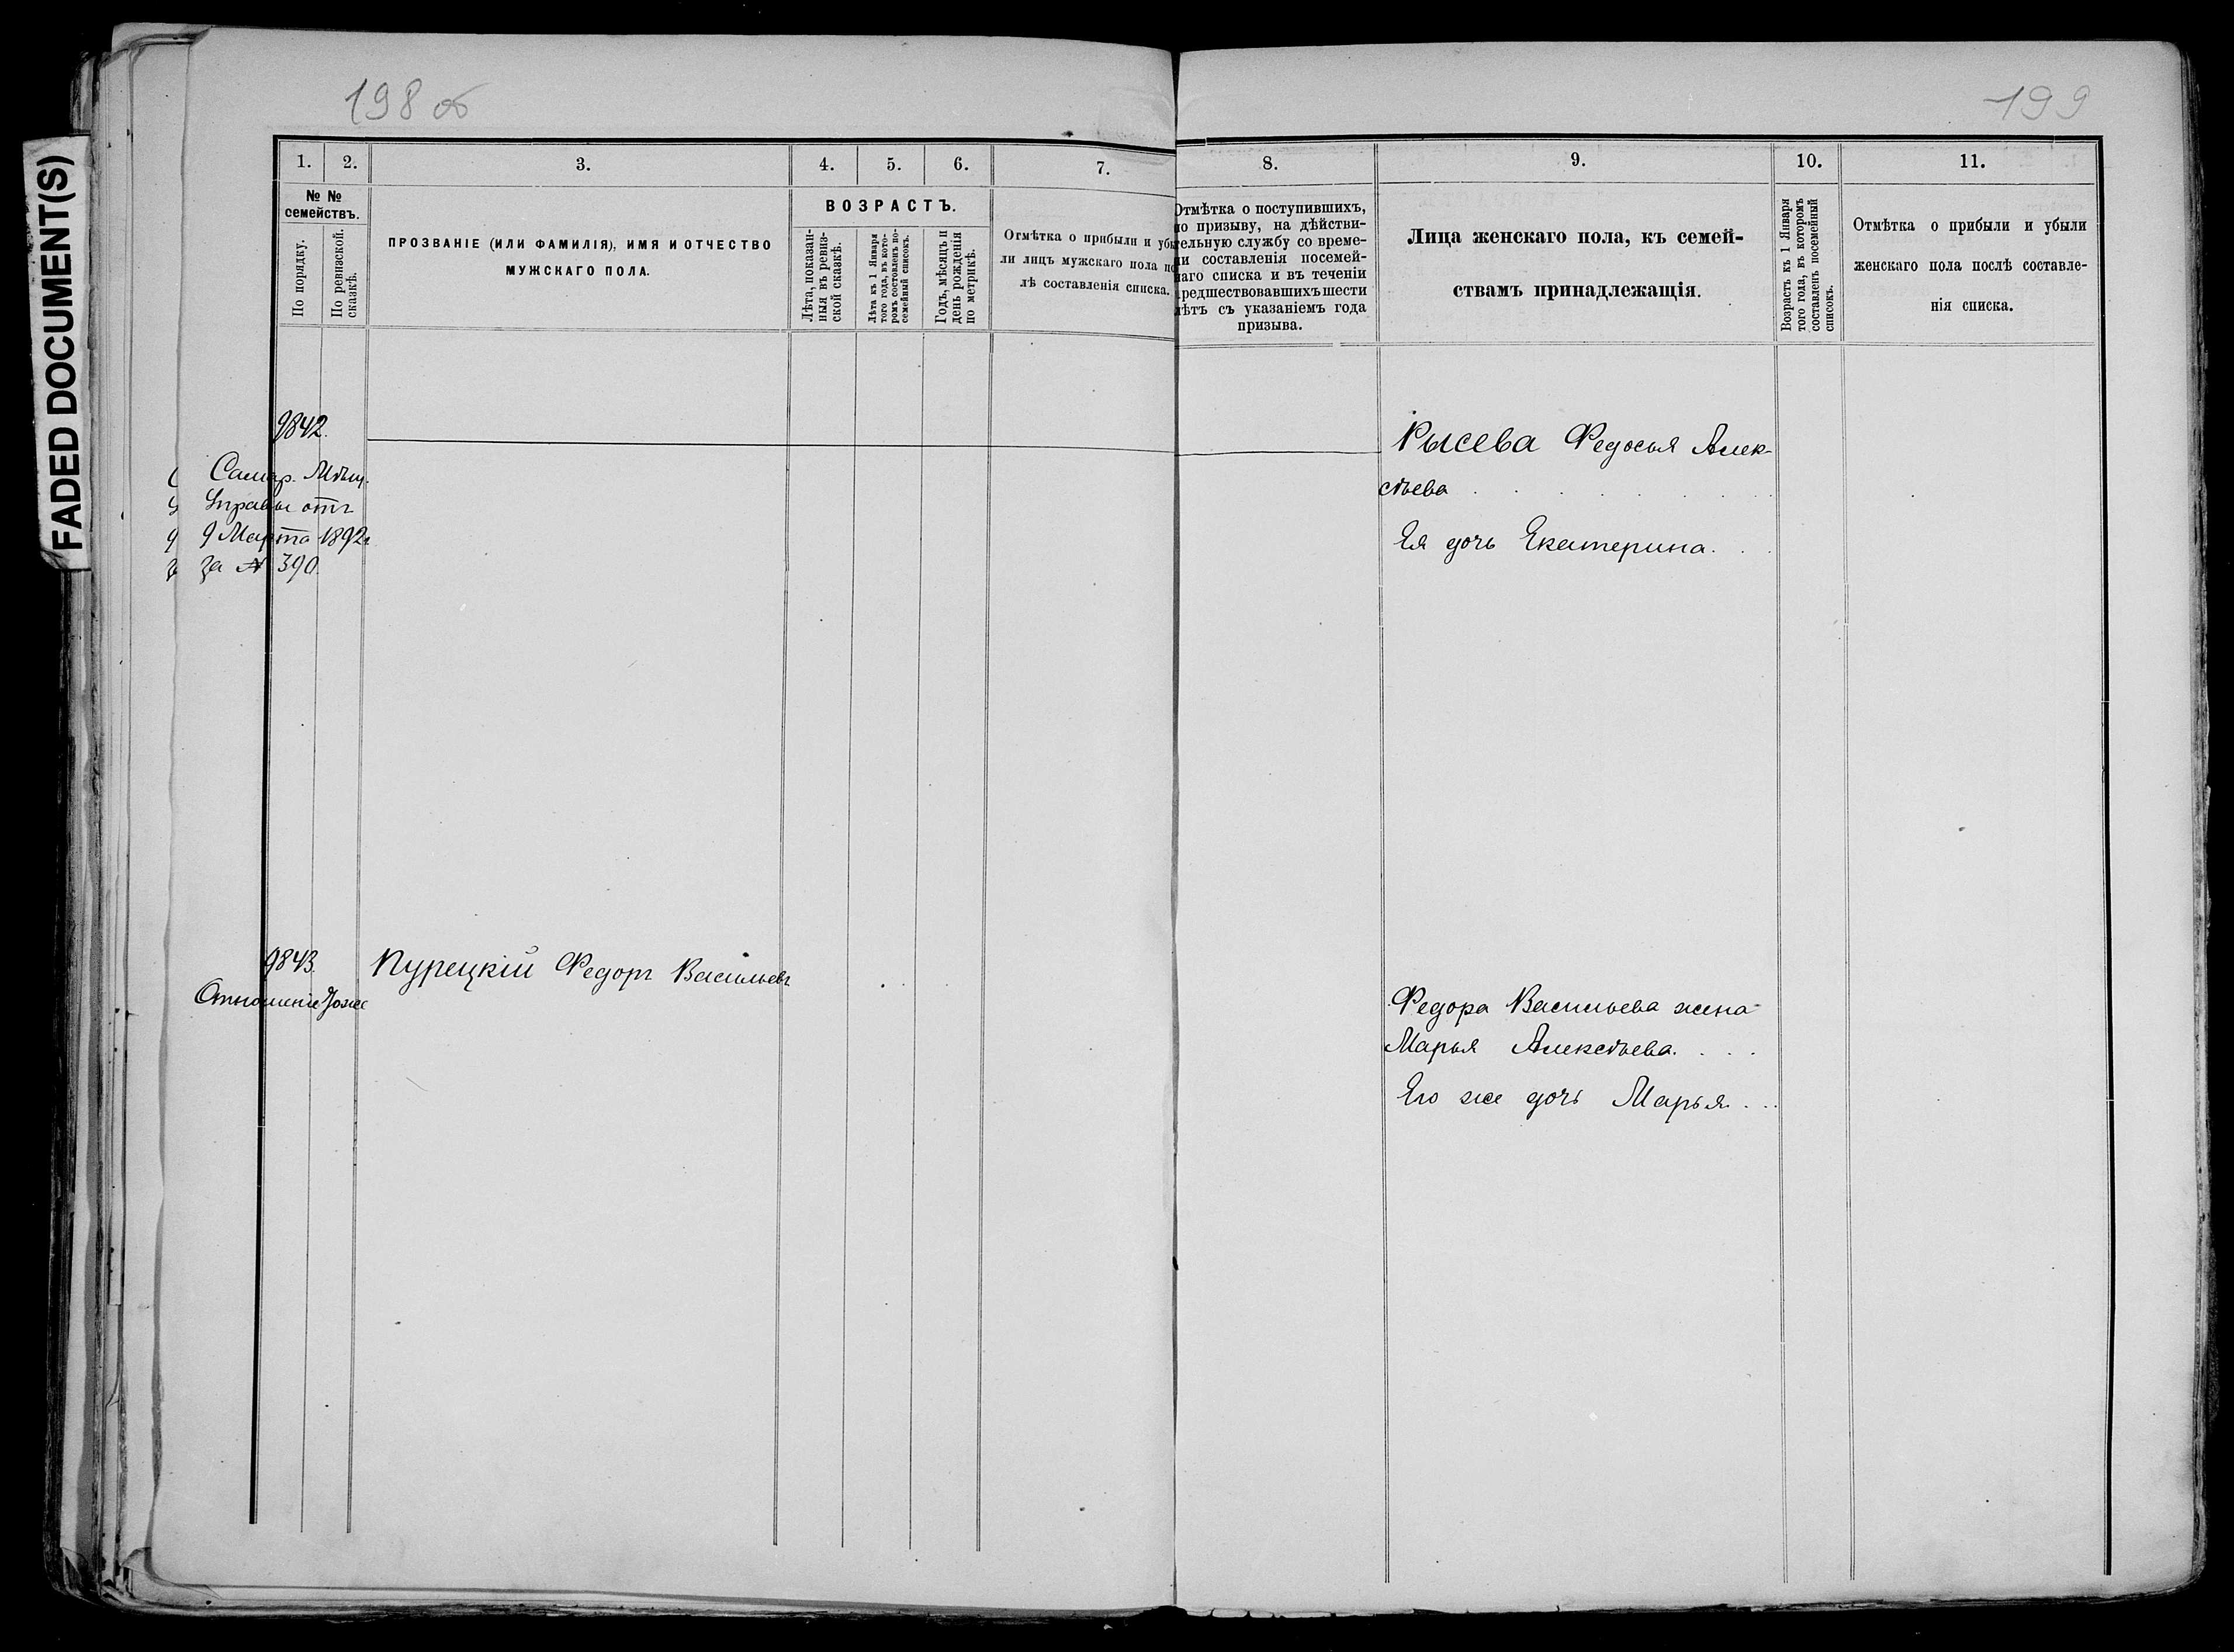 198 об
199
FADED DOCUMENT(S)
1.
2.
3.
4.
5.
6.
7.
№ №
семействъ.
По порядку.
По ревизской
сказкѣ.
ПРОЗВАНІЕ (ИЛИ ФАМИЛІЯ), ИМЯ И ОТЧЕСТВО
МУЖСКАГО ПОЛА.
ВОЗРАСТЪ.
Лѣта, показан-
ныя въ ревиз-
ской сказкѣ.
Лѣта къ 1 Января
того года, въ кото-
ромъ составленъ по-
семейный списокъ.
Годъ, мѣсяцъ и
день рожденія
по метрикѣ.
Отмѣтка о прибыли и убы
ли лицъ мужскаго пола по
лѣ составленія списка.
8.
9.
10.
11.
Отмѣтка о поступившихъ,
по призыву, на дѣйстви-
тельную службу со време-
ни составленія посемей-
наго списка и въ теченіи
предшествовавшихъ шести
лѣтъ съ указаніемъ года
призыва.
Лица женскаго пола, къ семей-
ствамъ принадлежащія.
Возрастъ къ 1 Января
того года, въ которомъ
составленъ посемейный
списокъ.
Отмѣтка о прибыли и убыли
женскаго пола послѣ составле-
нія списка.
9842.
Самар. Мѣщ.
Управы отъ
9 Марта 1892г
за № 390.
Рысева Федосья Алек-
сѣева
Ея дочь Екатерина.
9843.
Отношеніе Тоже
Пурецкій Федоръ Васильевъ
Федора Васильева жена
Марья Алексѣева.
Его же дочь Марья